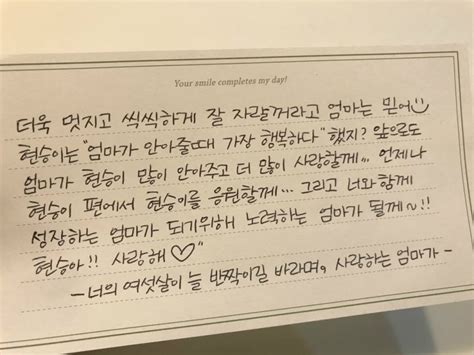 Your smile completes my day!
더욱 멋지고 씩씩하게 잘 자랄꺼라고 엄마는 믿어
현승이는 "엄마가 안아줄때 가장 행복하다" 했지? 앞으로도
엄마가 현승이 많이 안아주고 더 많이 사랑할께.. 언제나
현승이 편에서 현승이를 응원할께... 그리고 너와함께
성장하는 엄마가 되기위해 노력하는 엄마가 될께~!!
현승아!! 사랑해♡"
- 너의 여섯살이 늘 반짝이길 바라며, 사랑하는 엄마가 -